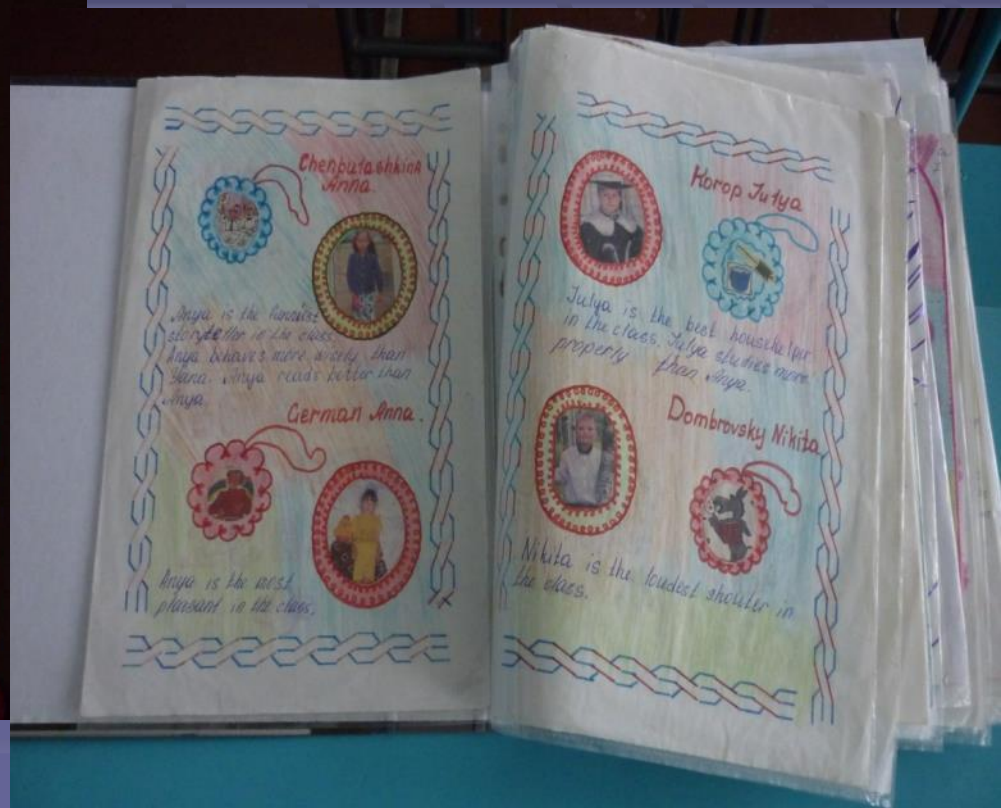 Chenbulashkina
Anna.
Anya is the funniest
storyteller in the class.
Anya behaves more nicely than
Yana. Anya reads better than
Anya.
German Anna.
Anya is the most
plaisant in the class.
Korop Julya
Julya is the best househelper
in the class. Julya studies more
properly than Anya.
Dombrovsky Nikita
Nikita is the loudest shouter in
the class.